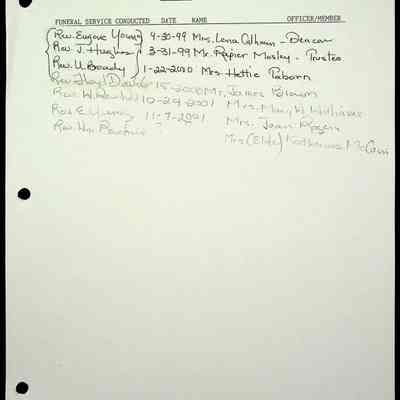 FUNERAL SERVICE CONDUCTED DATE NAME OFFICER/MEMBER
Rev. Eugene Young 4-30-99 Mrs. Lena Calhoun - Deacon
Rev. J. Hughes 3-31-99 Mr. Rapier Mosley - Trustee
Rev. U. Boady 1-22-2000 Mrs. Hettie Raborn
Rev. Lloyd 15-2000 Mr. James Brown
Rev. W. 10-29-2001 Mrs. Mary W. Williams
Rev. E. Young 11-7-2001 Mrs. Jean Rogers
Rev. Wm. ? Mrs (Elite) Katherine McCain